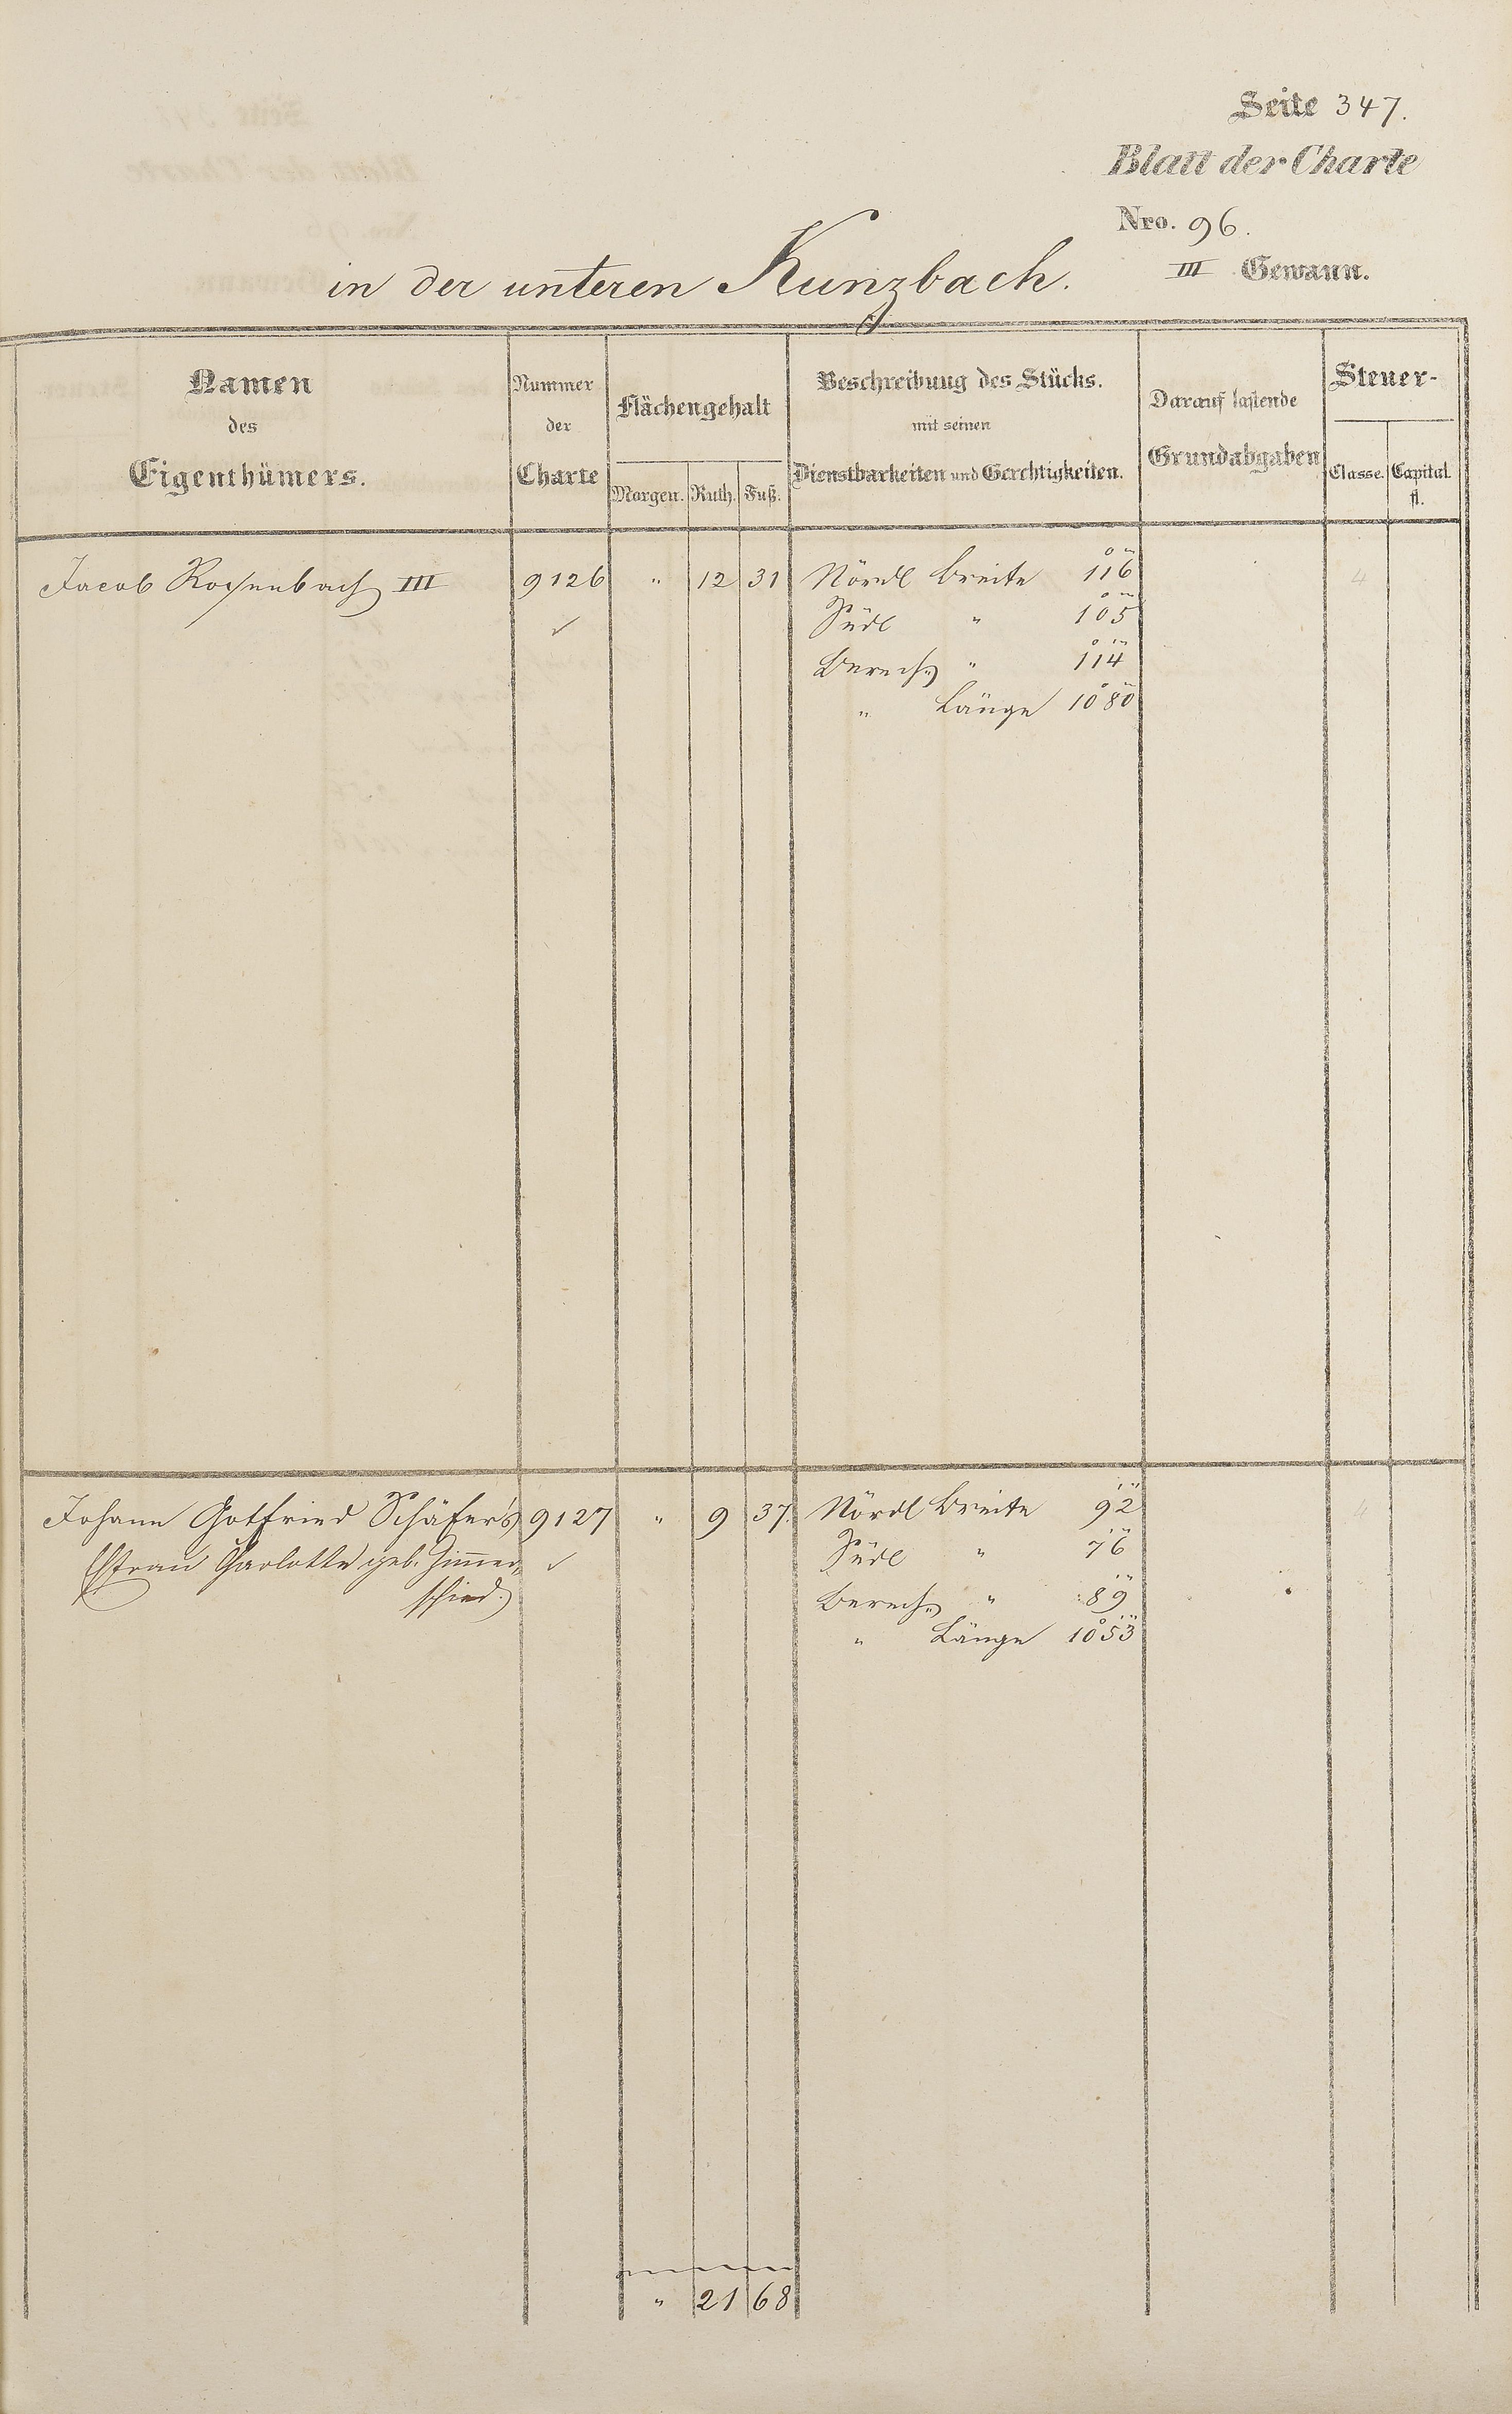 Seite 347.
Blatt der Charte
Nro. 96.
III Gewann.
in der unteren Kunzbach.
Namen des Eigenthümers.
Nummer der Charte
Flächengehalt
Morgen. Ruth. Fuß.
Beschreibung des Stücks.
mit seinen
Dienstbarkeiten und Gerechtigkeiten.
Darauf lastende
Grundabgaben
Steuer-
Classe. Capital.
fl.
Jacob Rossenbach III 9126 " 12 31 Nördl Breite 116 4
✓ Südl " 105
Berech " 114
" Länge 1080
Johann Gottfried Schäfer's 9127 " 9 37. Nördl Breite 92 4
Ehfrau Charlotte geb. Himmer ✓ Südl " 76
schied. Berech " 89
" Länge 1053
" 21 68